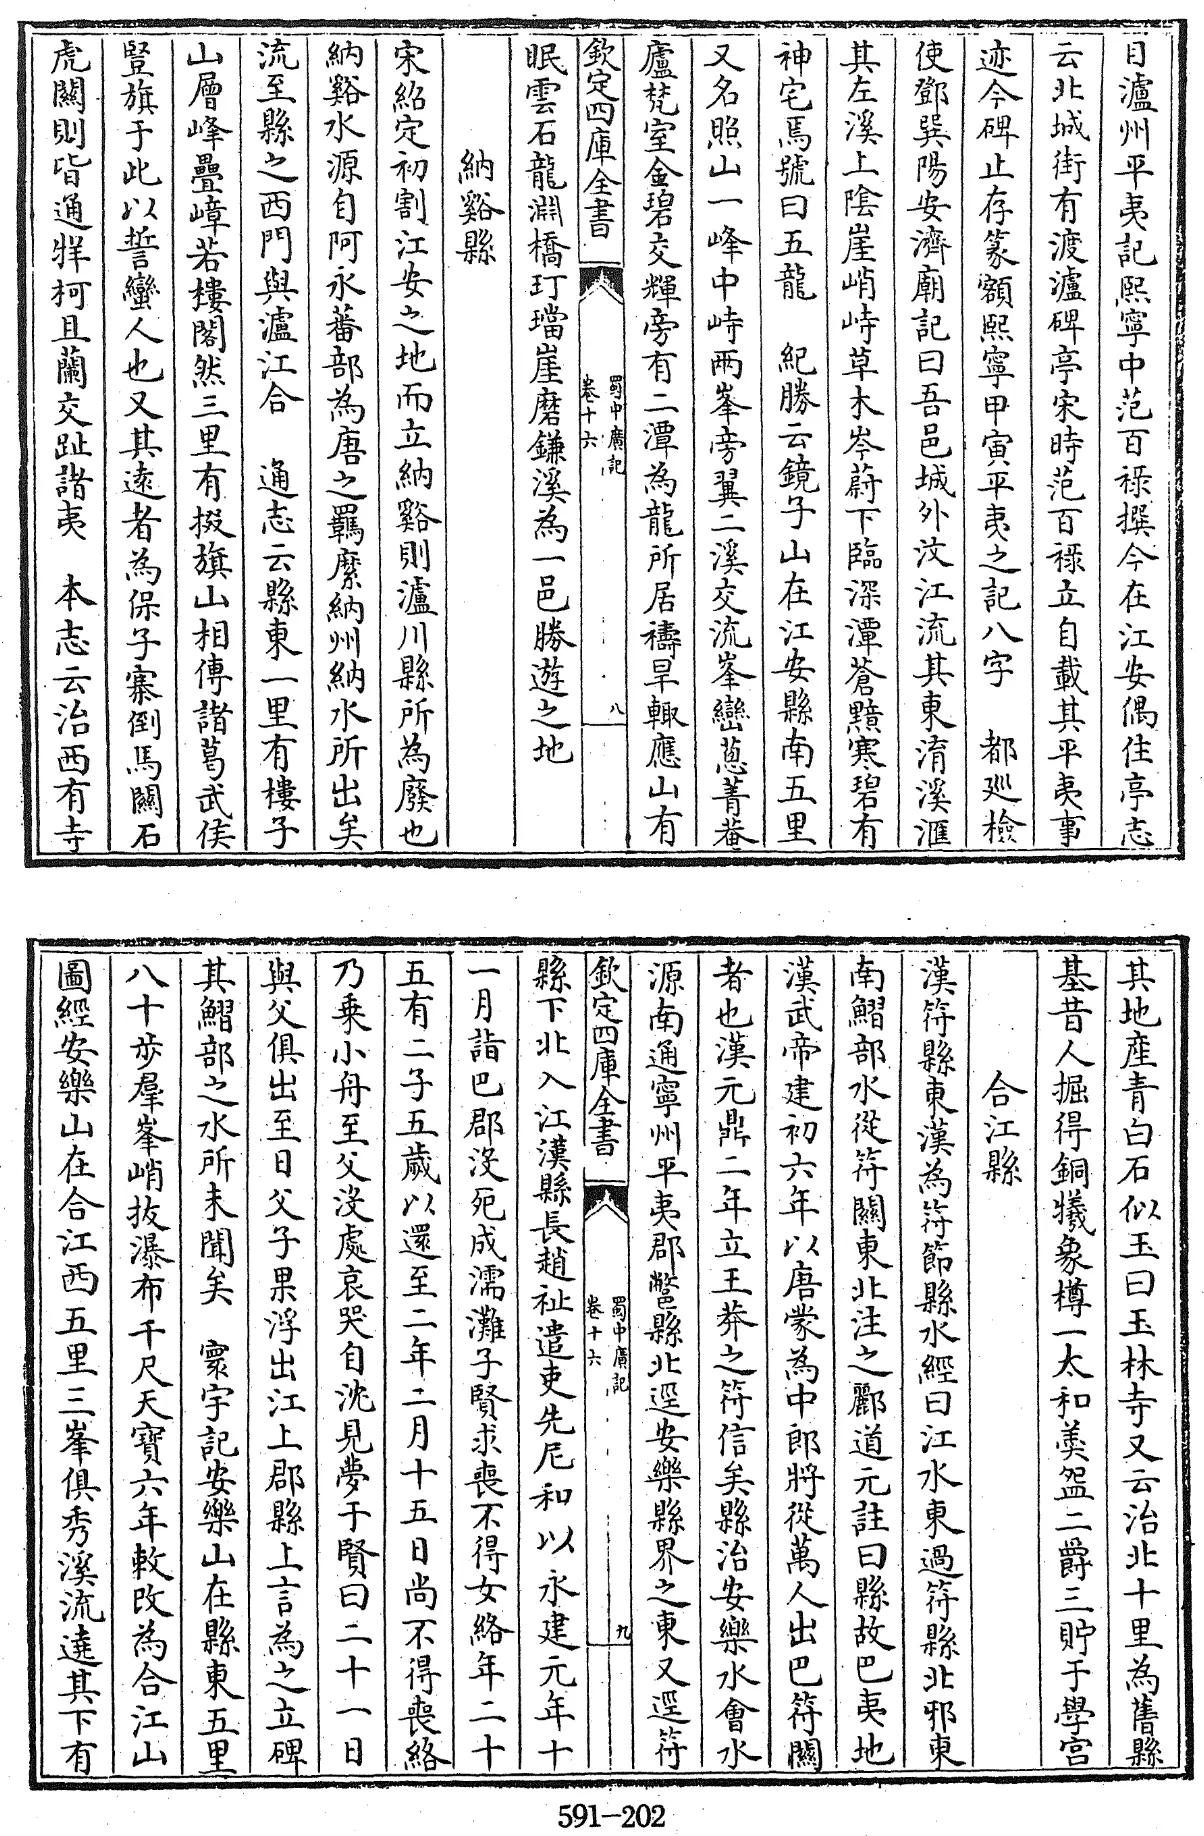 目瀘州平夷記熙寧中范百祿撰今在江安偶住亭志
云北城街有渡瀘碑亭宋時范百祿立自載其平夷事
迹今碑止存篆額熙寧甲寅平夷之記八字　都廵檢
使鄧巽陽安濟廟記曰吾邑城外汶江流其東淯溪滙
其左溪上陰崖峭峙草木岑蔚下臨深潭蒼黯寒碧有
神宅焉號曰五龍　紀勝云鏡子山在江安縣南五里
又名照山一峰中峙兩峯旁翼二溪交流峯巒蔥菁菴
廬梵室金碧交輝旁有二潭為龍所居禱旱輙應山有
欽定四庫全書
蜀中廣記
卷十六
八
眠雲石龍淵橋玎璫崖磨鎌溪為一邑勝遊之地
納谿縣
宋紹定初割江安之地而立納谿則瀘川縣所為廢也
納谿水源自阿永蕃部為唐之羈縻納州納水所出矣
流至縣之西門與瀘江合　通志云縣東一里有樓子
山層峰疊嶂若樓閣然三里有掇旗山相傳諸葛武侯
豎旗于此以誓蠻人也又其遠者為保子寨倒馬關石
虎關則皆通牂柯且蘭交趾諸夷　本志云治西有寺
其地産青白石似玉曰玉林寺又云治北十里為舊縣
基昔人掘得銅犧象樽一太和羮盌二爵三貯于學宮
合江縣
漢符縣東漢為符節縣水經曰江水東過符縣北邪東
南鰼部水從符關東北注之酈道元註曰縣故巴夷地
漢武帝建初六年以唐蒙為中郎將從萬人出巴符關
者也漢元鼎二年立王莽之符信矣縣治安樂水會水
源南通寧州平夷郡鄨縣北逕安樂縣界之東又逕符
欽定四庫全書
蜀中廣記
卷十六
九
縣下北入江漢縣長趙祉遣吏先尼和以永建元年十
一月詣巴郡沒死成濡灘子賢求喪不得女絡年二十
五有二子五歲以還至二年二月十五日尚不得喪絡
乃乗小舟至父沒處哀哭自沈見夢于賢曰二十一日
與父俱出至日父子果浮出江上郡縣上言為之立碑
其鰼部之水所未聞矣　寰宇記安樂山在縣東五里
八十步羣峯峭拔瀑布千尺天寶六年敕改為合江山
圖經安樂山在合江西五里三峯俱秀溪流遶其下有
591-202